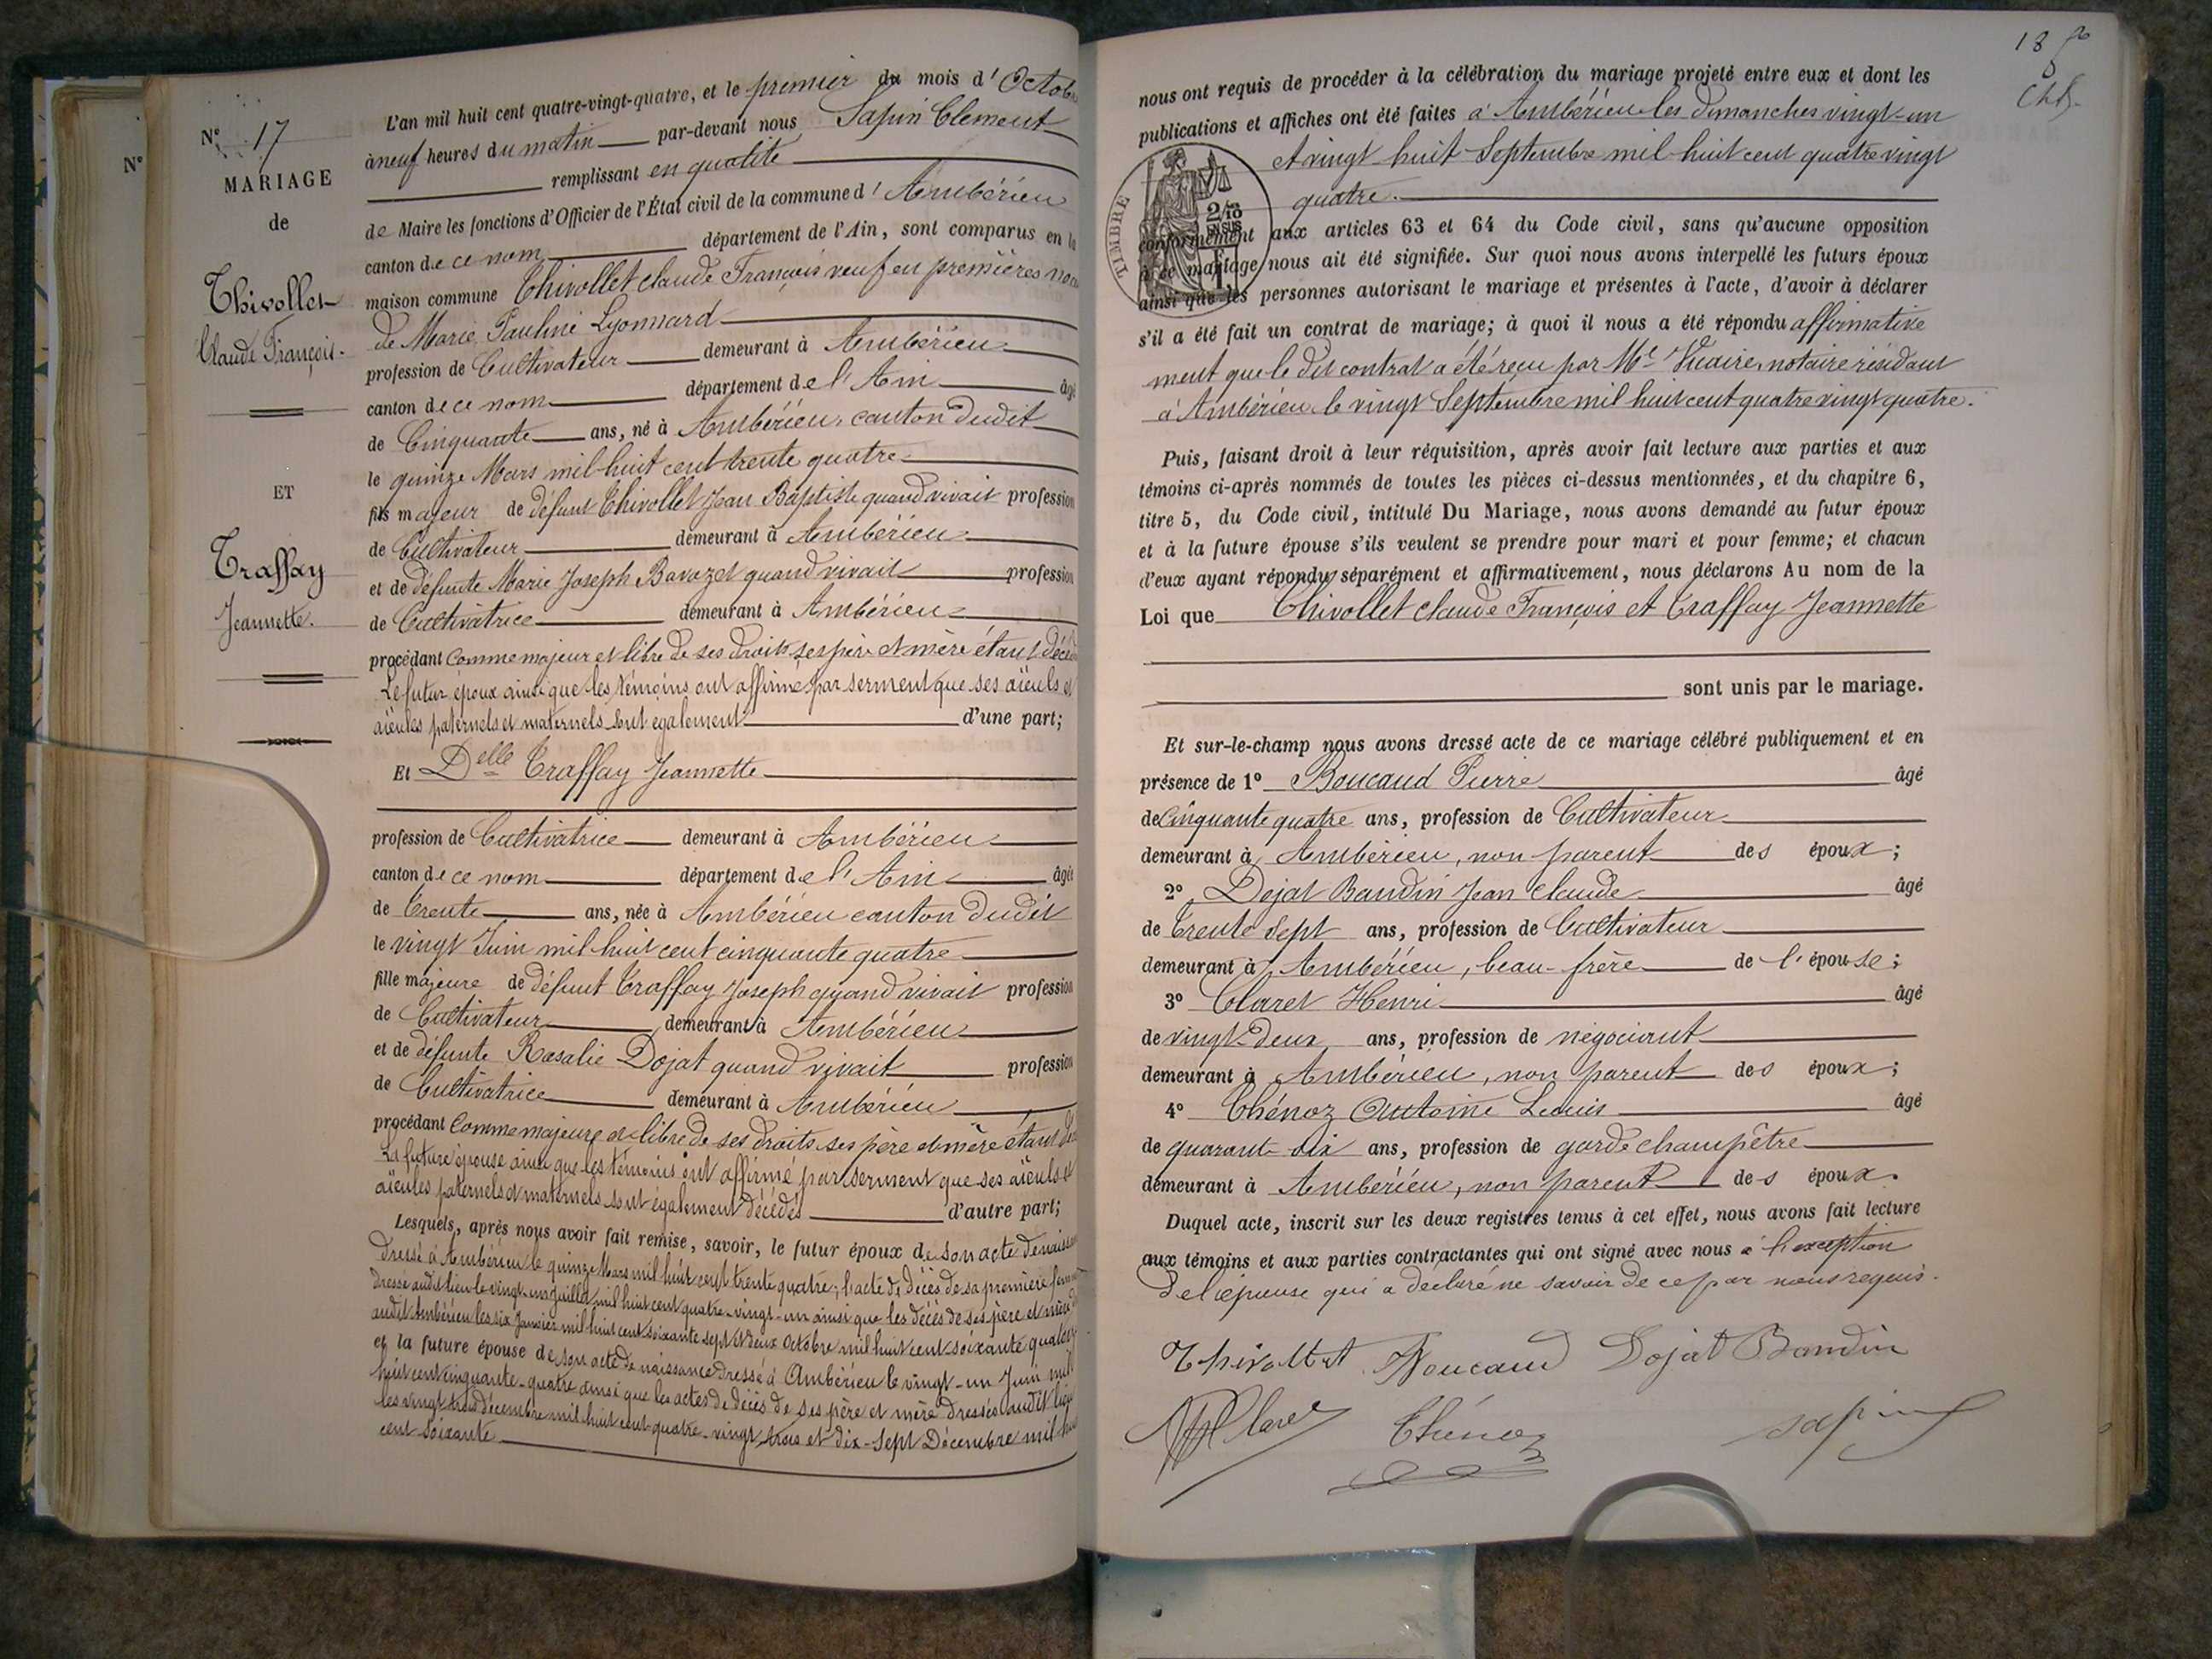 N°
N° 17
MARIAGE
de
Thivollet
Claude François.
ET
Traffay
Jeannette.
L'an mil huit cent quatre-vingt-quatre, et le premier du mois d'Octob
à neuf heures du matin par-devant nous Sapin Clement
remplissant en qualité
de Maire les fonctions d'Officier de l'État civil de la commune d'Ambérieu
canton de ce nom département de l'Ain, sont comparus en la
maison commune Thivollet Claude François veuf en premières no
de Marie Pauline Lyonnard
profession de Cultivateur demeurant à Ambérieu
canton de ce nom département de l'Ain âgé
de Cinquante ans, né à Ambérieu, canton dudit
le quinze Mars mil huit cent trente quatre
fils majeur de défunt Thivollet Jean Baptiste quand vivait profession
de Cultivateur demeurant à Ambérieu
et de défunte Marie Joseph Bavozet quand vivait profession
de Cultivatrice demeurant à Ambérieu
procédant comme majeur et libre de ses droits ses père et mère étant décé
Le futur époux ainsi que les témoins ont affirmé par serment que ses aïeuls et
aïeules paternels et maternels sont également d'une part;
Et Delle Traffay Jeannette
profession de Cultivatrice demeurant à Ambérieu
canton de ce nom département de l'Ain âgée
de Trente ans, née à Ambérieu canton dudit
le vingt Juin mil huit cent cinquante quatre
fille majeure de défunt Traffay Joseph quand vivait profession
de Cultivateur demeurant à Ambérieu
et de défunte Rosalie Dojat quand vivait profession
de Cultivatrice demeurant à Ambérieu
procédant comme majeure et libre de ses droits ses père et mère étant
La future épouse ainsi que les témoins ont affirmé par serment que ses aïeuls et
aïeules paternels et maternels sont également décédés d'autre part;
Lesquels, après nous avoir fait remise, savoir, le futur époux de son acte de naissan
dressé à Ambérieu le quinze Mars mil huit cent trente quatre; l'acte de décès de sa première femme
dressé audit lieu le vingt-un Juillet mil huit cent quatre-vingt-un ainsi que les décès de ses père et mère
audit Ambérieu les six Janvier mil huit cent soixante sept et deux Octobre mil huit cent soixante quatorz
et la future épouse de son acte de naissance dressé à Ambérieu le vingt-un Juin mil
huit cent cinquante-quatre ainsi que les actes de décès de ses père et mère dressés audit lieu
les vingt trois décembre mil huit cent quatre-vingt trois et dix-sept Décembre mil hui
cent soixante
18
nous ont requis de procéder à la célébration du mariage projeté entre eux et dont les
publications et affiches ont été faites à Ambérieu les dimanches vingt-un
et vingt huit Septembre mil huit cent quatre vingt
quatre.
TIMBRE
conformément aux articles 63 et 64 du Code civil, sans qu'aucune opposition
à ce mariage nous ait été signifiée. Sur quoi nous avons interpellé les futurs époux
ainsi que les personnes autorisant le mariage et présentes à l'acte, d'avoir à déclarer
s'il a été fait un contrat de mariage; à quoi il nous a été répondu affirmative
ment que le dit contrat a été reçu par Me Vicaire, notaire résidant
à Ambérieu le vingt Septembre mil huit cent quatre vingt quatre.
Puis, faisant droit à leur réquisition, après avoir fait lecture aux parties et aux
témoins ci-après nommés de toutes les pièces ci-dessus mentionnées, et du chapitre 6,
titre 5, du Code civil, intitulé Du Mariage, nous avons demandé au futur époux
et à la future épouse s'ils veulent se prendre pour mari et pour femme; et chacun
d'eux ayant répondu séparément et affirmativement, nous déclarons Au nom de la
Loi que Thivollet Claude François et Traffay Jeannette
sont unis par le mariage.
Et sur-le-champ nous avons dressé acte de ce mariage célébré publiquement et en
présence de 1° Boucaud Pierre âgé
de Cinquante quatre ans, profession de Cultivateur
demeurant à Ambérieu, non parent des époux;
2° Dojat Bandin Jean Claude âgé
de Trente sept ans, profession de Cultivateur
demeurant à Ambérieu, beau-frère de l'épouse;
3° Claret Henri âgé
de vingt-deux ans, profession de négociant
demeurant à Ambérieu, non parent des époux;
4° Chénoz Antoine Louis âgé
de quarante six ans, profession de garde champêtre
demeurant à Ambérieu, non parent des époux.
Duquel acte, inscrit sur les deux registres tenus à cet effet, nous avons fait lecture
aux témoins et aux parties contractantes qui ont signé avec nous à l'exception
de l'épouse qui a déclaré ne savoir de ce par nous requis.
Thivollet Boucaud Dojat Bandin
Claret Chénoz Sapin